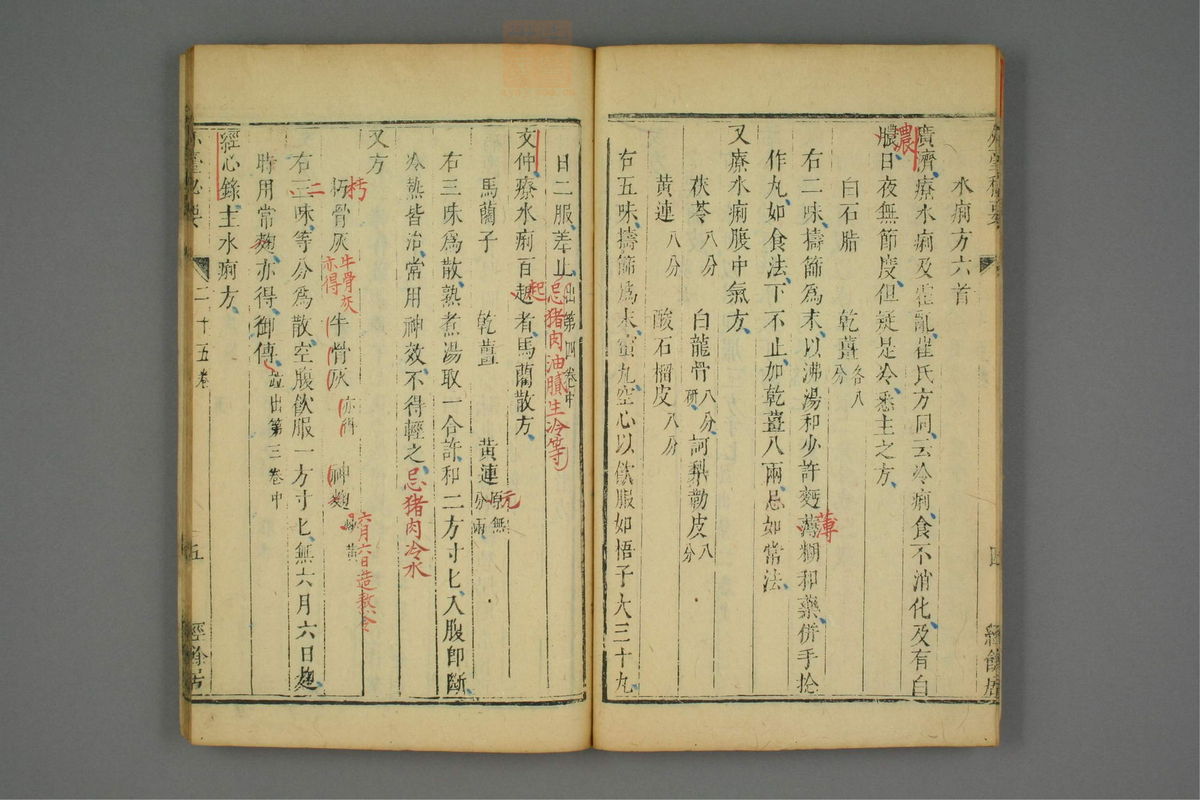 水痢方六首
廣濟療水痢及霍亂崔氏方同云冷痢食不消化及有白
膿日夜無節度但疑是冷悉主之方
濃
白石脂 乾薑各八分
右二味擣篩爲末以沸湯和少許麪薄糊和藥併手捻
薄
作丸如食法下不止加乾薑八兩忌如常法
又療水痢腹中氣方
茯苓八分 白龍骨八分研 訶梨勒皮八分
黃連八分 酸石榴皮八分
右五味擣篩爲末蜜丸空心以飲服如梧子大三十九
四
日二服差止出第四卷中
忌猪肉油膩生冷等
文仲療水痢百起者馬藺散方
起
馬藺子 乾薑 黃連原無分兩
元
右三味爲散熟煮湯取一合許和二方寸匕入腹卽斷
冷熱皆治常用神效不得輕之
忌猪肉冷水
又方
朽骨灰 牛骨灰亦得 神麴
朽
牛骨灰亦得
六月六日造熬令
右三味等分爲散空腹飲服一方寸匕無六月六日麴
二
時用常麴亦得御傳並出第三卷中
經心錄主水痢方
外臺秘要 二十五卷 五 經餘居